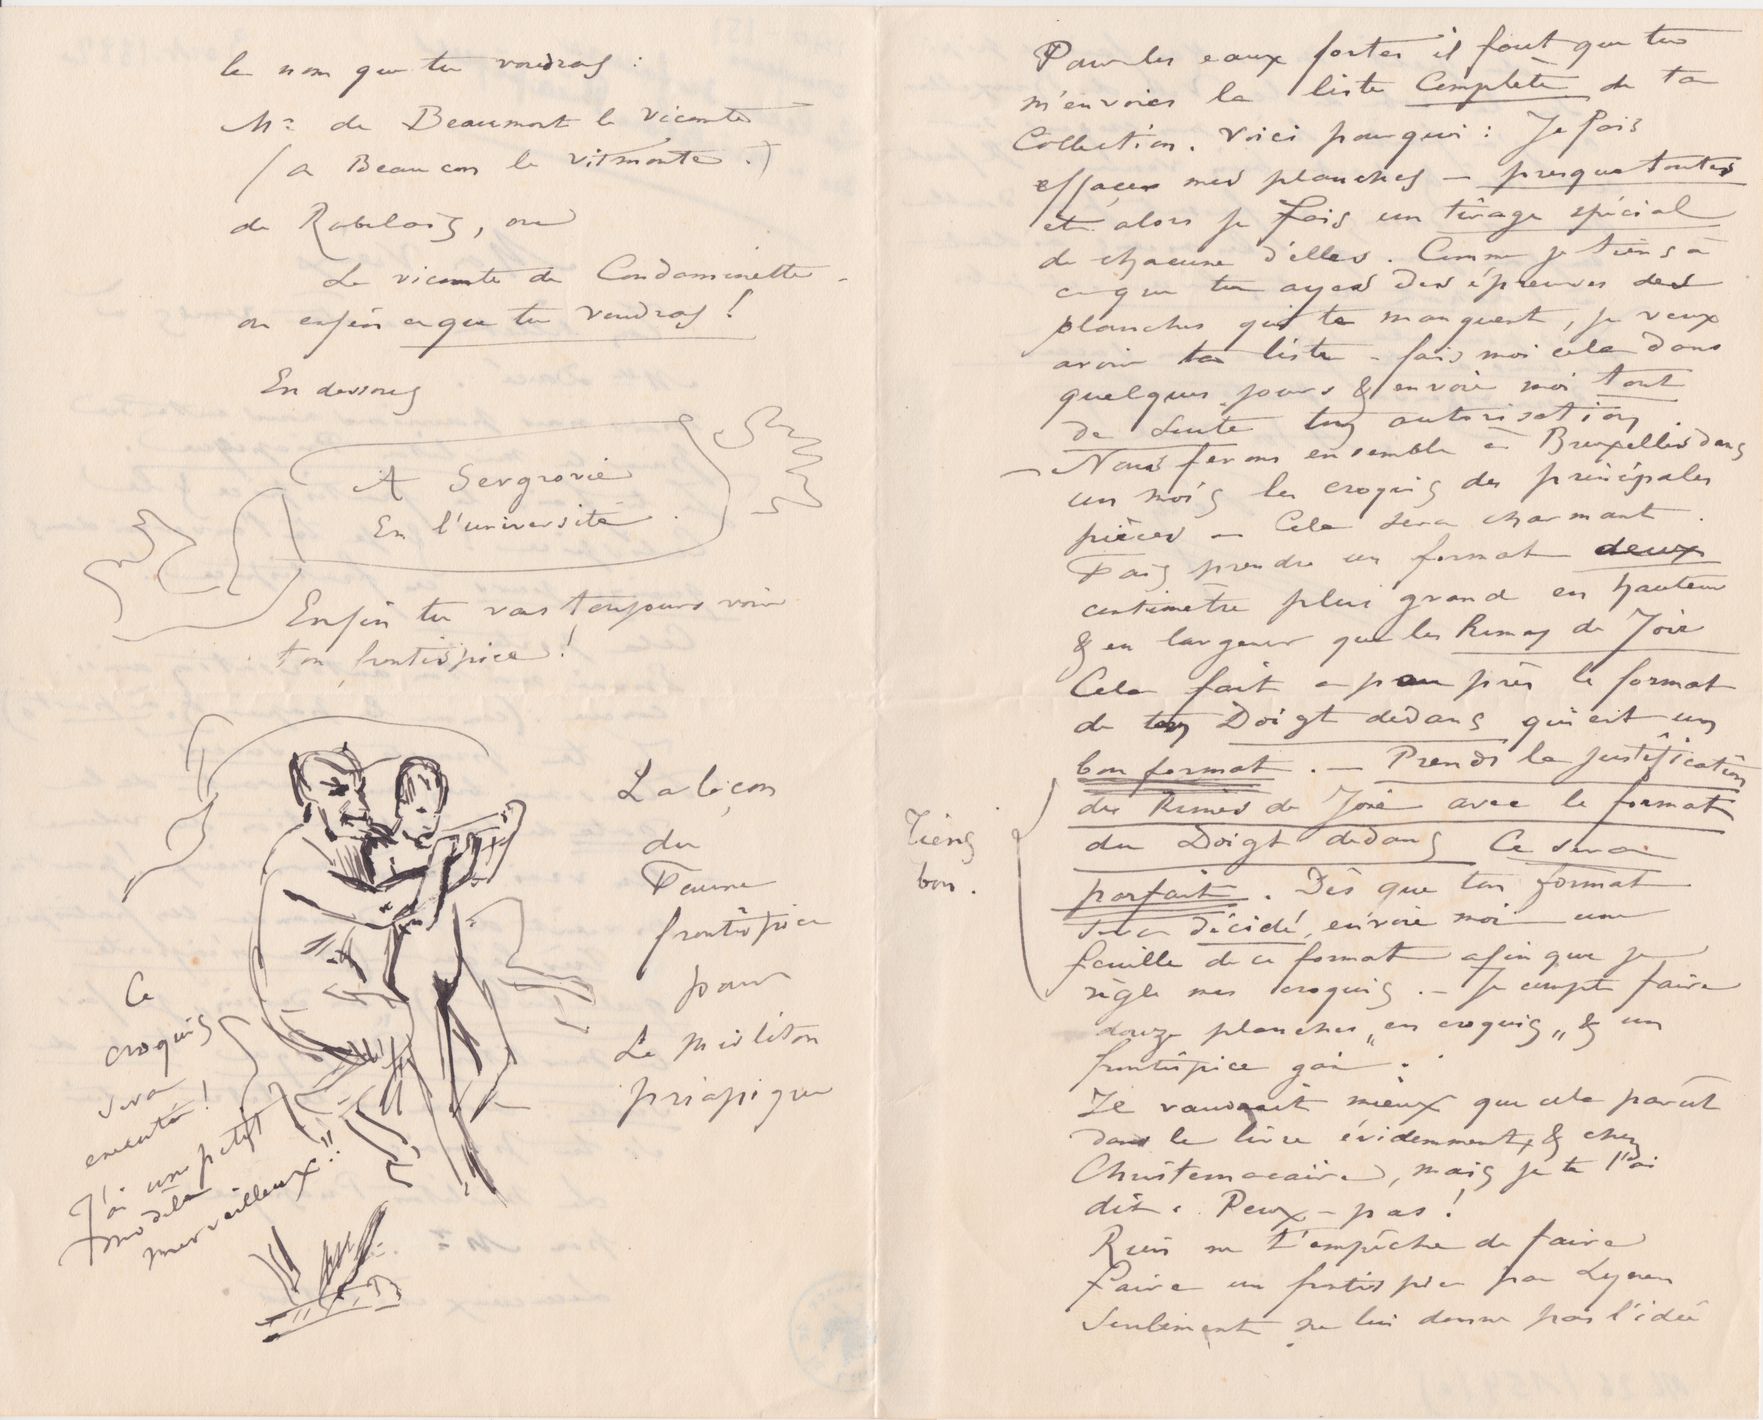 le nom que tu voudras :
Mr de Beaumont le vicomte
( a Beaucon le vitmonte . )
de Rabelais, ou
Le vicomte de Condaminette -
ou enfin ce que tu voudras !
En dessous
A Sergrovie
En l'université .
Enfin tu vas toujours voir
ton frontispice !
La leçon
du
Faune
frontispice
pour
Le Mirliton
priapique
Ce
croquis
sera
executé !
J'ai un petit
modèle
merveilleux !!
Pour les eaux fortes il faut que tu
m'envoies la liste Complète de ta
Collection. Voici pourquoi : Je fais
effacer mes planches — presque toutes
et alors je fais un tirage spécial
de chacune d'elles. Comme je tiens à
ce que tu ayes des épreuves des
planches qui te manquent, je veux
avoir ta liste - fais moi cela dans
quelques jours & envoie moi tout
de suite ton autorisation
— Nous ferons ensemble à Bruxelles dans
un mois les croquis des principales
pièces — Cela sera charmant .
Fais prendre un format deux
centimètre plus grand en hauteur
& en largeur que les Rimes de Joie
Cela fait a peu près le format
de ton Doigt dedans qui est un
bon format . — Prends la justification
des Rimes de Joie avec le format
du Doigt dedans Ce sera
parfait . Dès que ton format
sera décidé, envoie moi une
feuille de ce format afin que je
règle mes croquis . — Je compte faire
douze planches „ en croquis „ & un
frontispice gai .
Tiens
bon .
Il vaudrait mieux que cela parût
dans le livre évidemment, & chez
Christemacaire, mais je te l'ai
dit : Peux - pas !
Rien ne t'empêche de faire
faire un frontispice par Lynen
Seulement ne lui donne pas l'idée